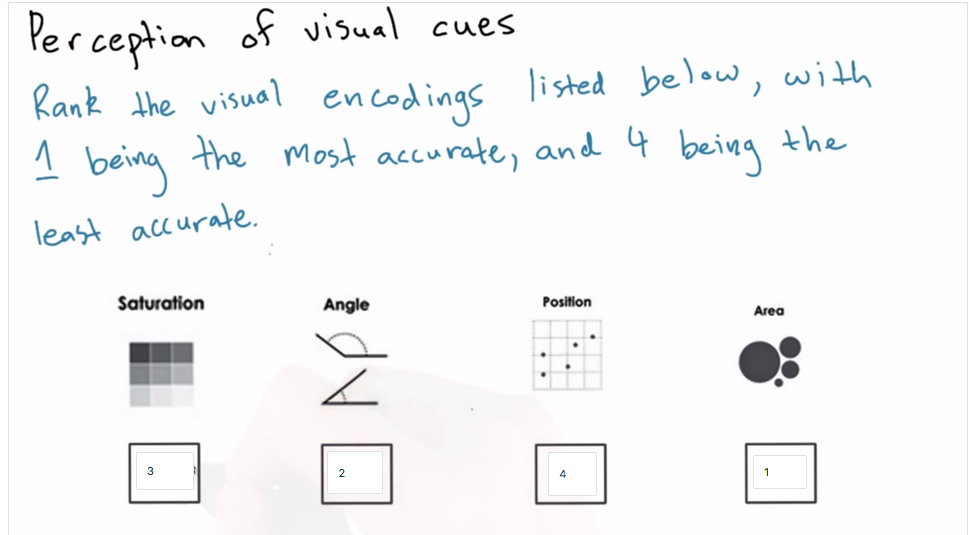 Perception of visual cues
Rank the visual encodings listed below, with
1 being the most accurate, and 4 being the
least accurate.
Saturation Angle Position Area
3 2 4 1